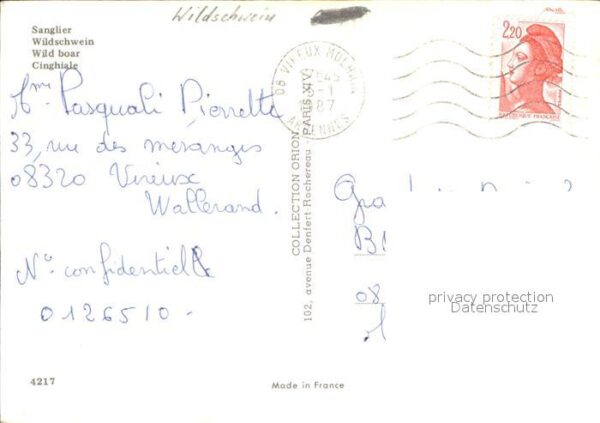 Wildschwein
Sanglier
Wildschwein
Wild boar
Cinghiale
2,20
REPUBLIQUE FRANÇAISE
08 VIREUX MOLHAIN
87
ARDENNES
Mme Pasquali Pierrette
33, rue des mésanges
08320 Vireux
Wallerand.
N° confidentielle
0126510 -
COLLECTION ORION
102, avenue Denfert Rochereau PARIS XIV
Gra
B
08
privacy protection
Datenschutz
4217
Made in France